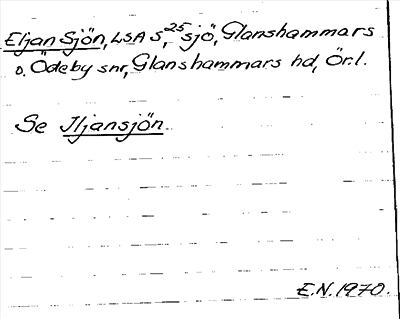 Eljan Sjön, LSA S, 25 sjö, Glanshammars
o. Ödeby snr, Glanshammars hd, Ör.l.
Se Iljansjön.
E.N. 1970.